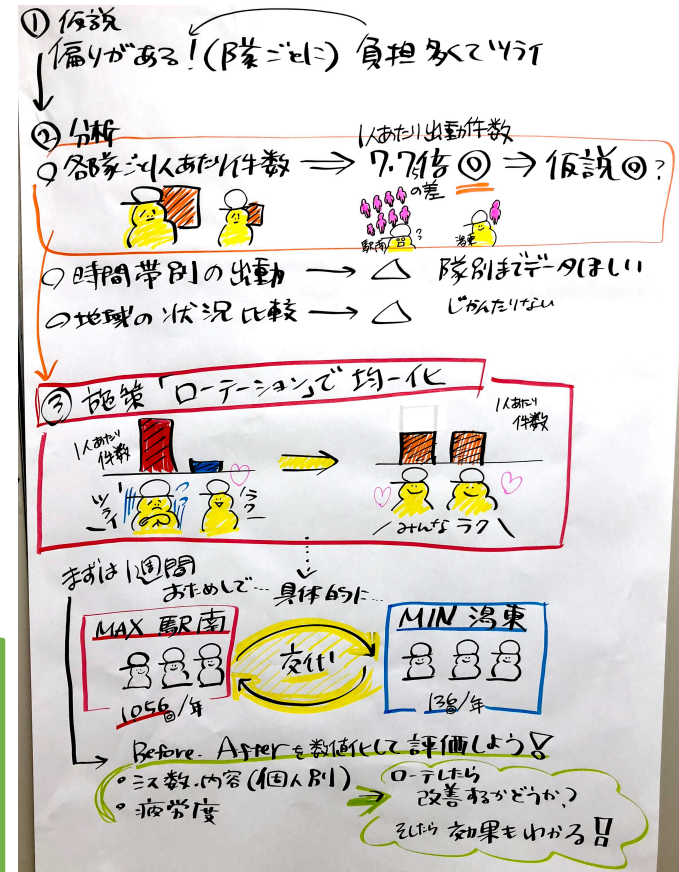 ① 仮説
偏りがある!(隊ごとに) 負担多くてツライ
② 分析
1人あたり出動件数
○ 各隊ごと1人あたり件数 → 7.7倍 ◎ ⇒ 仮説◎?
の差
駅南 ?
潟東
○ 時間帯別の出動 → △ 隊別までデータほしい
○ 地域の状況比較 → △ じかんたりない
③ 施策「ローテーション」で均一化
1人あたり
件数
1人あたり
件数
ツライ
ラクー
みんなラク
まずは1週間
おためしで… 具体的に…
MAX 駅南
MIN 潟東
交代
1056回/年
136回/年
Before. Afterを数値化して評価しよう!
・ミス数.内容(個人別)
・疲労度
ローテしたら
改善するかどうか?
そしたら 効果もわかる!!